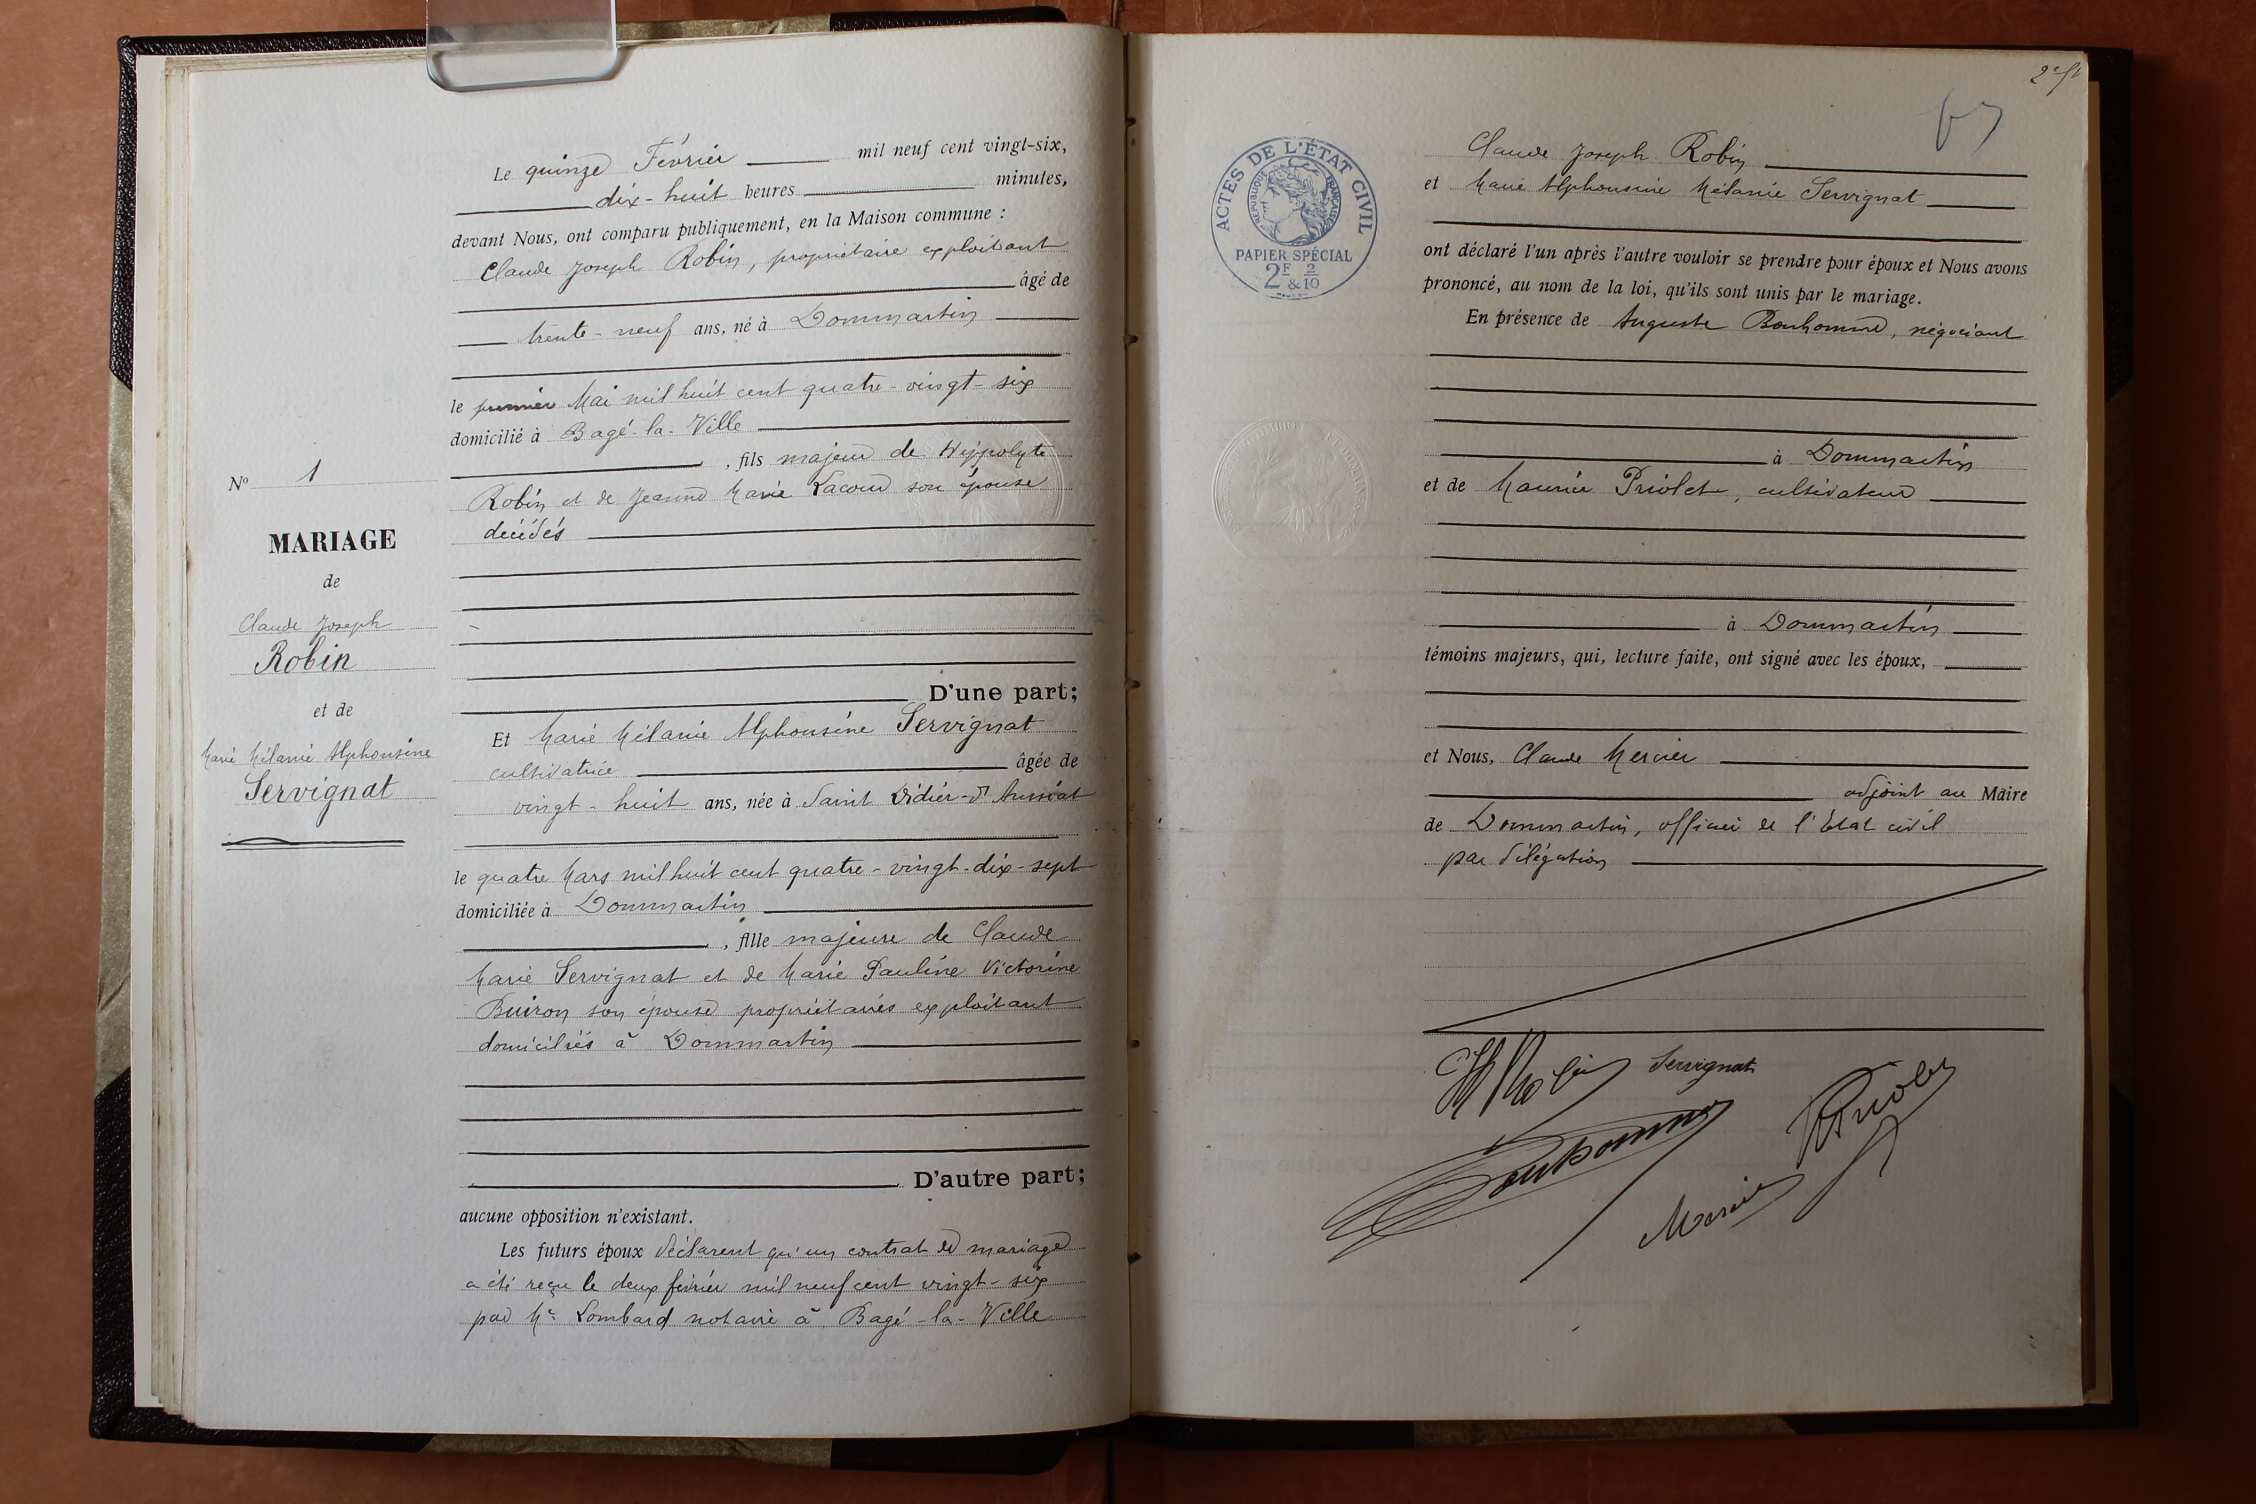 Le quinze Février mil neuf cent vingt-six,
dix-huit heures minutes,
devant Nous, ont comparu publiquement, en la Maison commune :
Claude Joseph Robin, propriétaire exploitant
âgé de
trente-neuf ans, né à Dommartin
le premier Mai mil huit cent quatre-vingt-six
domicilié à Bagé-la-Ville
, fils majeur de Hippolyte
Robin et de Jeanne Marie Lacour son épouse
décédés
D'une part;
Et Marie Mélanie Alphonsine Servignat
cultivatrice âgée de
vingt-huit ans, née à Saint Didier-d'Aussiat
le quatre Mars mil huit cent quatre-vingt-dix-sept
domiciliée à Dommartin
, fille majeure de Claude
Marie Servignat et de Marie Pauline Victorine
Buiron son épouse propriétaires exploitant
domiciliés à Dommartin
D'autre part;
aucune opposition n'existant.
Les futurs époux déclarent qu'un contrat de mariage
a été reçu le deux février mil neuf cent vingt-six
par Me Lombard notaire à Bagé-la-Ville
No 1
MARIAGE
de
Claude Joseph
Robin
et de
Marie Mélanie Alphonsine
Servignat
ACTES DE L'ÉTAT CIVIL
RÉPUBLIQUE FRANÇAISE
PAPIER SPÉCIAL
2F & 2/10
Claude Joseph Robin
et Marie Alphonsine Mélanie Servignat
ont déclaré l'un après l'autre vouloir se prendre pour époux et Nous avons
prononcé, au nom de la loi, qu'ils sont unis par le mariage.
En présence de Auguste Bonhomme, négociant
à Dommartin
et de Maurice Priolet, cultivateur
à Dommartin
témoins majeurs, qui, lecture faite, ont signé avec les époux,
et Nous, Claude Mercier
adjoint au Maire
de Dommartin, officier de l'Etat civil
par délégation
Robin Servignat
Bonhomme Priolet
Mercier